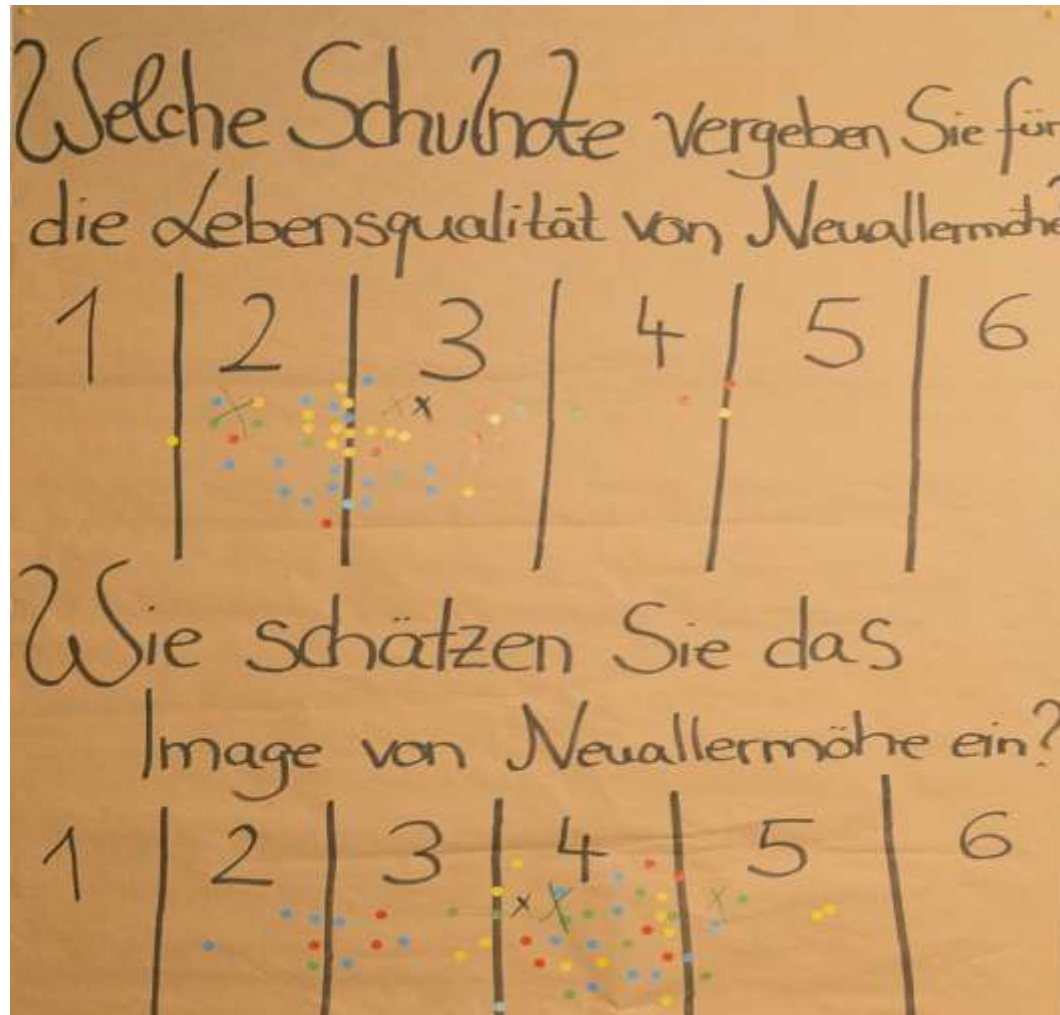 Welche Schulnote vergeben Sie für
die Lebensqualität von Neuallermöhe?
1 2 3 4 5 6
Wie schätzen Sie das
Image von Neuallermöhe ein?
1 2 3 4 5 6